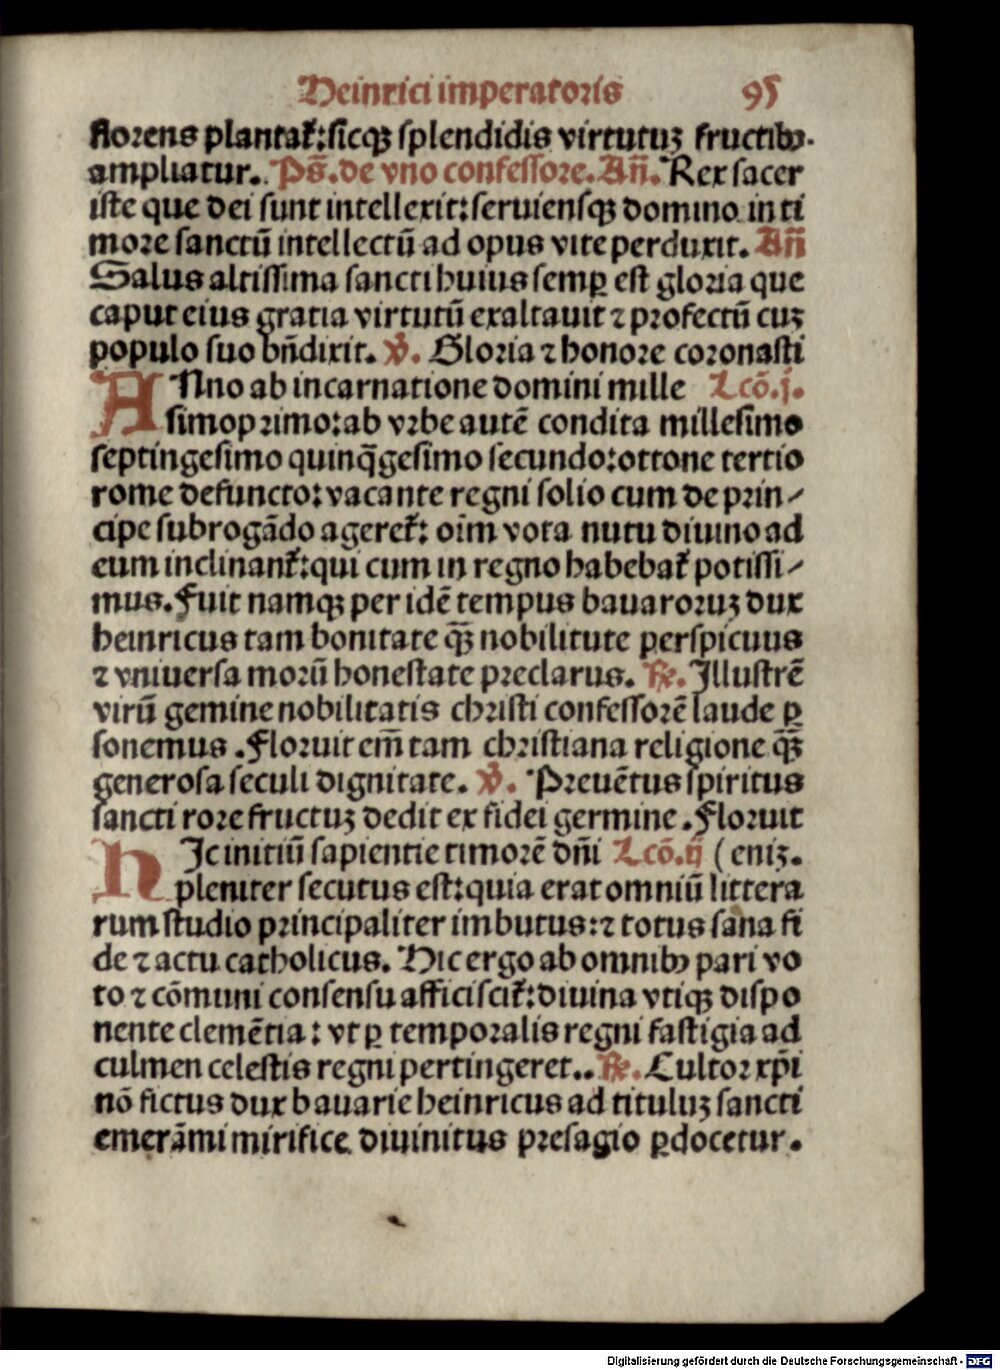 Heinrici imperatoris 95
florens plantat᷒: sicqꝫ splendidis virtutuꝫ fructibꝰ·
ampliatur.. Ps̄. de vno confessore. Añ. Rex sacer
iste que dei sunt intellexit: seruiensqꝫ domino in ti
more sanctū intellectū ad opus vite perduxit. Añ
Salus altissima sancti huius semꝑ est gloria que
caput eius gratia virtutū exaltauit ⁊ profectū cuꝫ
populo suo bñdixit. ℣. Gloria ⁊ honore coronasti
ANno ab incarnatione domini mille Lcō. j.
simoprimo: ab vrbe autē condita millesimo
septingesimo quinq̄gesimo secundo: ottone tertio
rome defuncto: vacante regni solio cum de prin⸗
cipe subrogādo ageret᷒: oīm vota nutu diuino ad
eum inclinant᷒: qui cum in regno habebat᷒ potissi⸗
mus. Fuit namqꝫ per idē tempus bavaroruꝫ dux
heinricus tam bonitate qꝫ̄ nobilitute perspicuus
⁊ vniuersa morū honestate preclarus. ℟. Illustrē
virū gemine nobilitatis christi confessorē laude ꝑ
sonemus. Floruit em̄ tam christiana religione qꝫ̄
generosa seculi dignitate. ℣. Preuētus spiritus
sancti rore fructuꝫ dedit ex fidei germine. Floruit
HIc initiū sapientie timorē dñi Lcō. ij (eniꝫ.
pleniter secutus est: quia erat omniū littera
rum studio principaliter imbutus: ⁊ totus sana fi
de ⁊ actu catholicus. Hic ergo ab omnibꝰ pari vo
to ⁊ cōmuni consensu afficiscit᷒: diuina vtiqꝫ dispo
nente clemētia: vt ꝑ temporalis regni fastigia ad
culmen celestis regni pertingeret.. ℟. Cultor xp̄i
nō fictus dux bavarie heinricus ad tituluꝫ sancti
emerāmi mirifice diuinitus presagio ꝑdocetur.
Digitalisierung gefördert durch die Deutsche Forschungsgemeinschaft - DFG